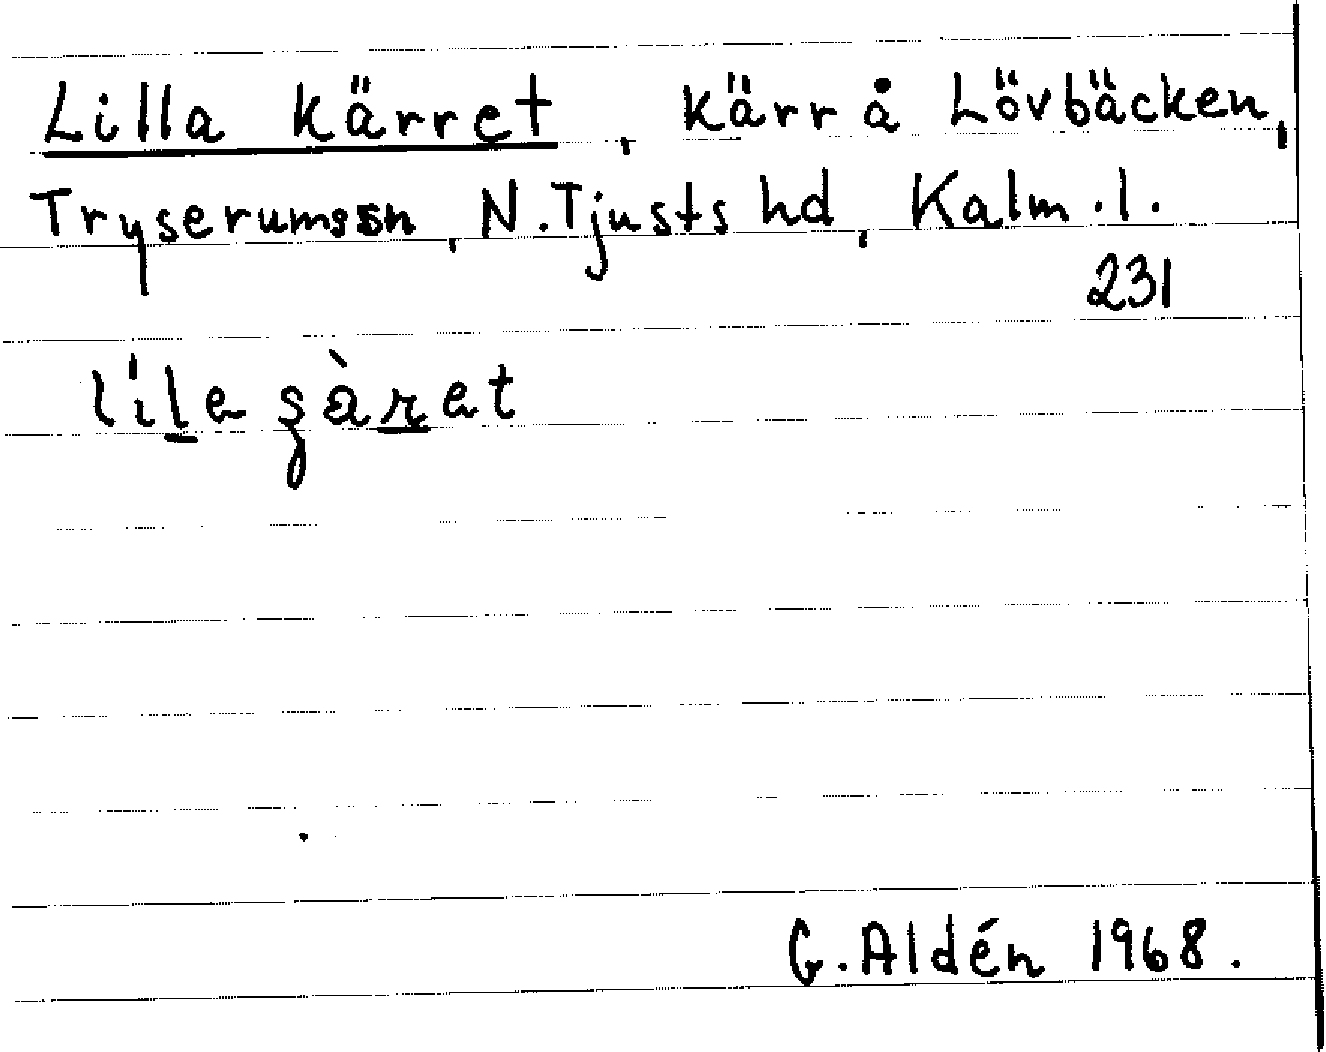 Lilla kärret, kärr å Lövbäcken,
Tryserums sn, N. Tjusts hd, Kalm. l.
231
G. Aldén 1968.